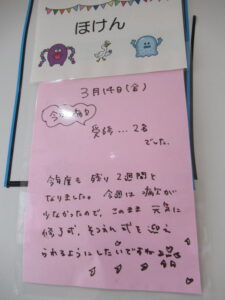 ほけん
3月14日(金)
今日の病名
受診...2名
でした。
今年度も残り2週間と
なりました。今週は病欠が
少なかったので、このまま元気に
修了式、そつえん式を迎え
られるようにしたいですね